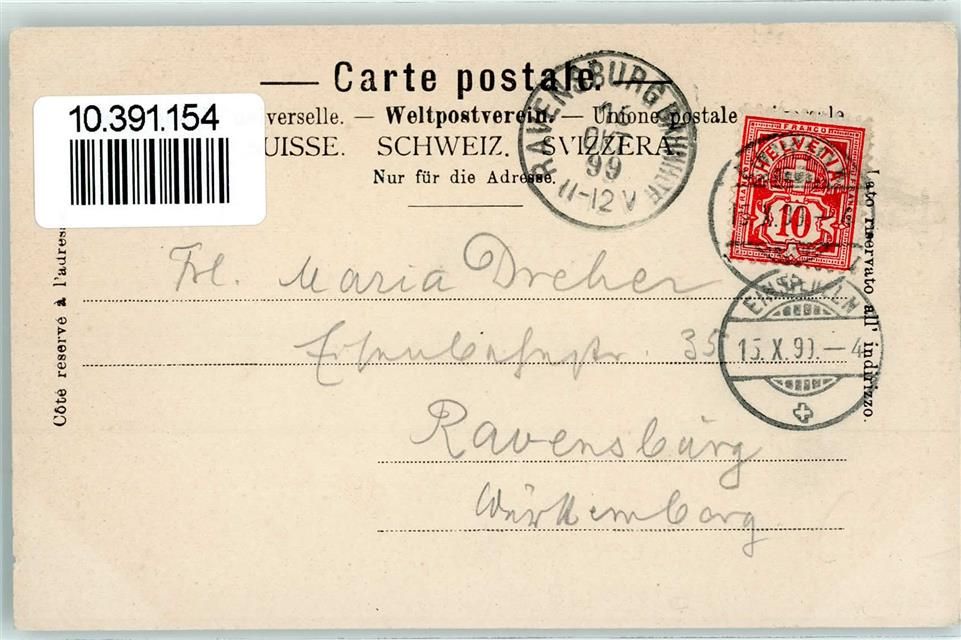 Carte postale.
10.391.154
verselle. — Weltpostverein. — Unione postale
UISSE. SCHWEIZ. SVIZZERA.
Nur für die Adresse.
RAVENSBURG BAHNHOF
OKT
99
11-12 V
FRANCO
HELVETIA
10
Côté reservé à l'adres
Lato riservato all' indirizzo.
EINSIEDELN
15.X.99.—4
Frl. Maria Dreher
Eisenbahnstr. 35
Ravensburg
Württemberg